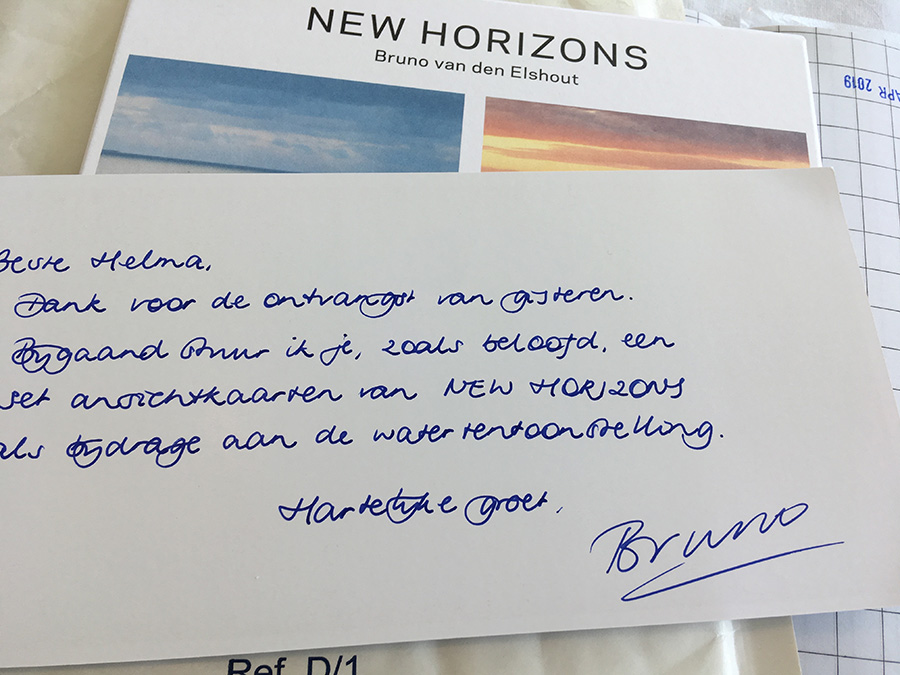 NEW HORIZONS
Bruno van den Elshout
APR 2019
Beste Helma,
Dank voor de ontvangst van gisteren.
Bijgaand stuur ik je, zoals beloofd, een
set ansichtkaarten van NEW HORIZONS
als bijdrage aan de watertentoonstelling.
Hartelijke groet,
Bruno
Ref. D/1